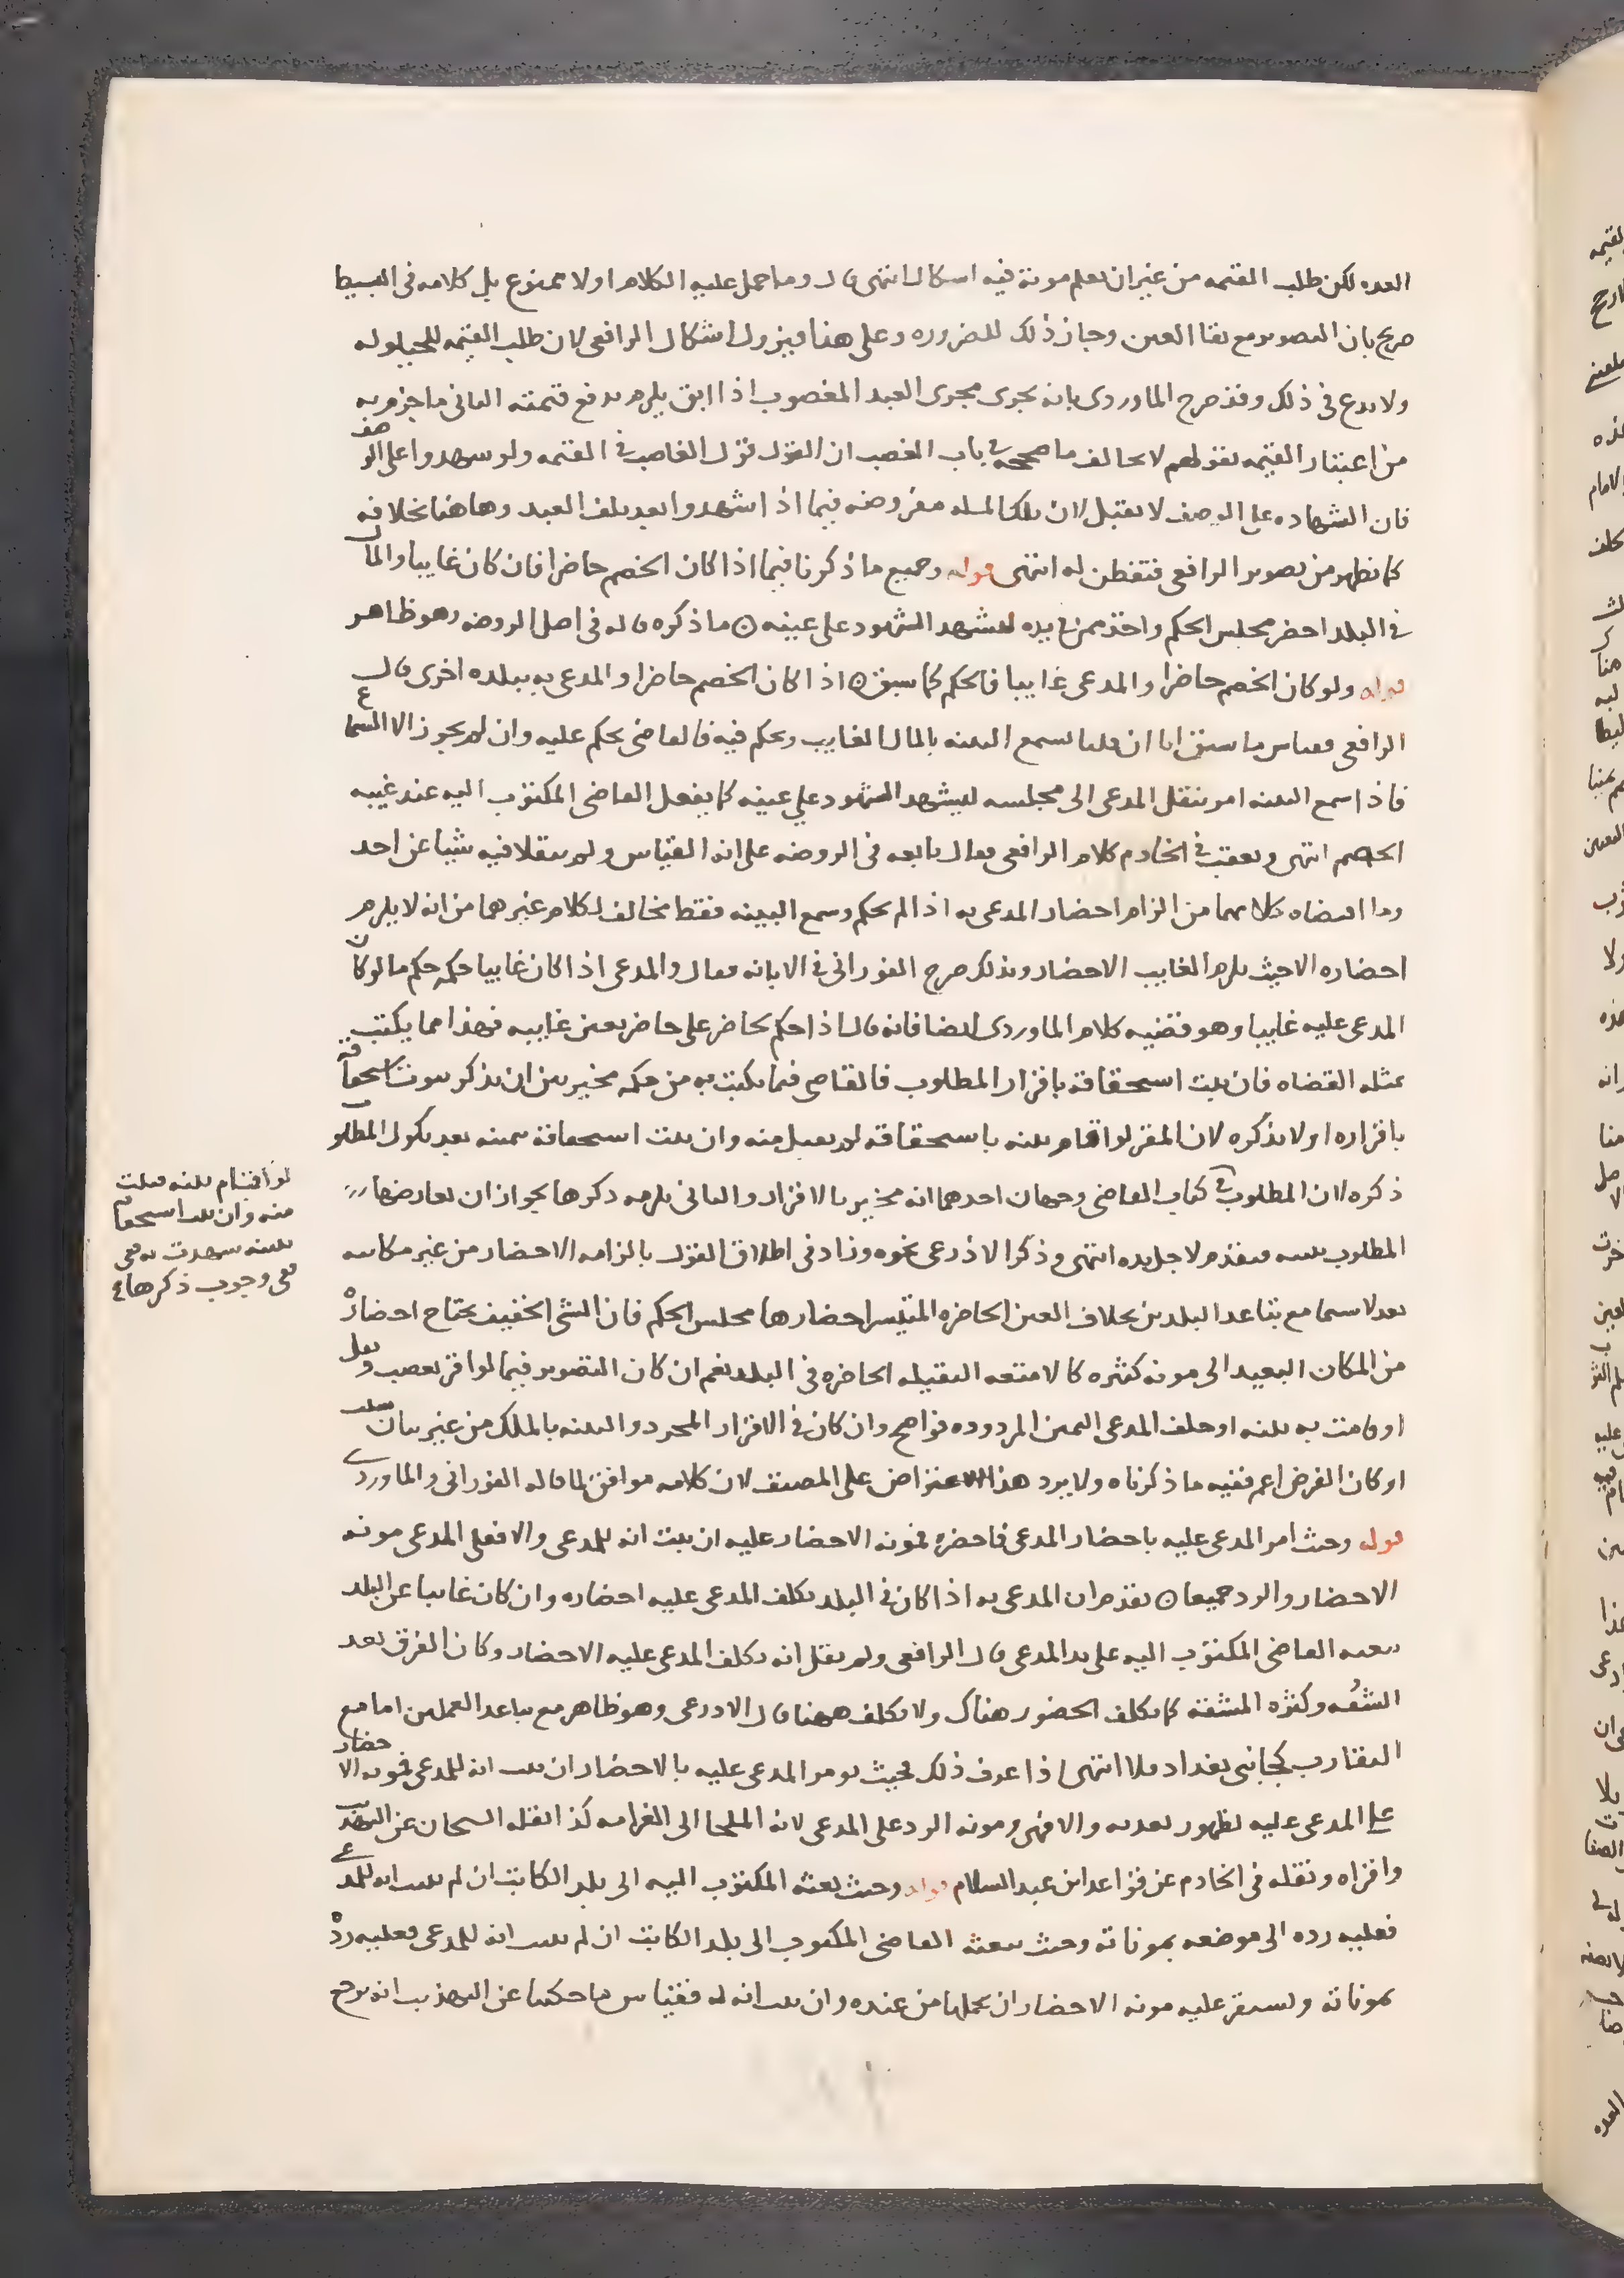 العده لكن طلب القيمه من غير ان يعلم موته فيه اشكال انتهى قال وما حمل عليه الكلام اولا ممنوع بل كلامه فى البسيط
صريح بان التصوير مع بقا العين وجاز ذلك للضروره وعلى هذا فيزول اشكال الرافعى لان طلب القيمه للحيلوله
ولا بدع فى ذلك وقد صرح الماوردى بانه يجرى مجرى العبد المغصوب اذا ابق يلزم بدفع قيمته الثانى ما جزم به
من اعتبار القيمه بقولهم لا يخالف ما صححه فى باب الغصب ان القول قول الغاصب فى القيمه ولو شهدوا على الوصف
فان الشهاده على الوصف لا يقبل لان تلك المسله مفروضه فيما اذا شهدوا بعد تلف العبد وهاهنا بخلافه
كما يظهر من تصوير الرافعى فتفطن له انتهى قوله وجميع ما ذكرنا فيما اذا كان الخصم حاضرا فان كان غايبا والمال
فى البلد احضر مجلس الحكم واخذ ممن فى يده ليشهد الشهود على عينه ما ذكره قاله فى اصل الروضه وهو ظاهر
قوله ولو كان الخصم حاضرا والمدعى غايبا فالحكم كما سبق اذا كان الخصم حاضرا والمدعى به ببلده اخرى قال
الرافعى فقياس ما سبق انا ان قلنا نسمع البينه بالمال الغايب ويحكم فيه فالقاضى يحكم عليه وان لم يجوز الا السماع
فاذا سمع البينه امر بنقل المدعى الى مجلسه ليشهد الشهود على عينه كما يفعل القاضى المكتوب اليه عند غيبه
الخصم انتهى وتعقب فى الخادم كلام الرافعى فقال تابعه فى الروضه على انه القياس ولم ينقلا فيه شيا عن احد
وما اقتضاه كلامهما من الزام احضار المدعى به اذا لم يحكم وسمع البينه فقط مخالف لكلام غيرهما من انه لا يلزم
احضاره الا حيث يلزم الغايب الاحضار وبذلك صرح الفورانى فى الابانه فقال والمدعى اذا كان غايبا حكمه حكم ما لو كان
المدعى عليه غايبا وهو قضيه كلام الماوردى ايضا فانه قال اذا حكم لحاضر على حاضر بعين غايبه فهذا مما يكتب
بمثله القضاه فان ثبت استحقاقه باقرار المطلوب فالقاضى فيما يكتب به من حكمه مخير بين ان يذكر ثبوت استحقاقه
باقراره او لا يذكره لان المقر لو اقام بينه باستحقاقه لم يقبل منه وان ثبت استحقاقه بيمينه بعد نكول المطلوب
ذكره لان المطلوب فى كتاب القاضى وجهان احدهما انه مخير بالاقرار والثانى يلزمه ذكرها لجواز ان يعارضها
المطلوب ببينه فيقدم لاجل يده انتهى وذكر الاذرعى نحوه وزاد فى اطلاق القول بالزامه الاحضار من غير مكاتبه
بعد لا سيما مع تباعد البلدين بخلاف العين الحاضره المتيسر احضارها مجلس الحكم فان الشى الخفيف يحتاج احضاره
من المكان البعيد الى مونه كثيره كالامتعه الثقيله الحاضره فى البلد نعم ان كان التصوير فيما لو اقر بغصب ونقل
او قامت به بينه او حلف المدعى اليمين المردوده فواضح وان كان فى الاقرار المجرد والبينه بالملك من غير بيان سبب
او كان الفرض اعم ففيه ما ذكرناه ولا يرد هذا الاعتراض على المصنف لان كلامه موافق لما قاله الفورانى والماوردى
قوله وحيث امر المدعى عليه باحضار المدعى فاحضره فمونه الاحضار عليه ان ثبت انه للمدعى والا فعلى المدعى مونه
الاحضار والرد جميعا تقدم ان المدعى به اذا كان فى البلد يكلف المدعى عليه احضاره وان كان غايبا عن البلد
بعثه القاضى المكتوب اليه على يد المدعى قال الرافعى ولم يقل انه يكلف المدعى عليه الاحضار وكان الفرق بعد
الشقه وكثره المشقه كما يكلف الحضور هناك ولا يكلف ههنا قال الاذرعى وهو ظاهر مع تباعد العملين اما مع
التقارب كجانبى بغداد فلا انتهى اذا عرف ذلك فحيث يومر المدعى عليه بالاحضار ان ثبت انه للمدعى فمونه الاحضار
على المدعى عليه لظهور تعديه والا فهى ومونه الرد على المدعى لانه الملجا الى الغرامه كذا نقله الشيخان عن التهذيب
واقراه ونقله فى الخادم عن قواعد ابن عبد السلام قوله وحيث بعثه المكتوب اليه الى بلد الكاتب ان لم يثبت انه للمدعى
فعليه رده الى موضعه بموناته وحيث بعثه القاضى المكتوب الى بلد الكاتب ان لم يثبت انه للمدعى فعليه رده
بموناته ويستقر عليه مونه الاحضار ان تحملها من عنده وان ثبت انه له فقياس ما حكينا عن التهذيب انه يرجع
لو اقام بينه قبلت
منه وان ثبت استحقاقه
ببينه شهدت به ففى
وجوب ذكرها